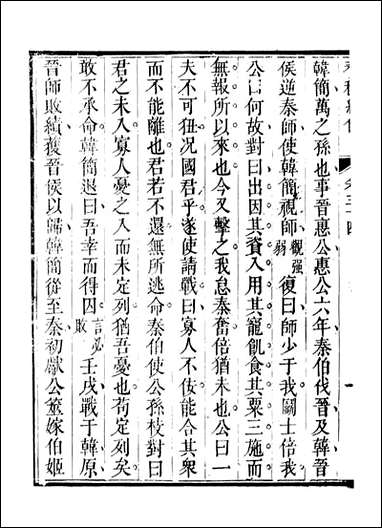 韓簡萬之孫也事晉惠公惠公六年秦伯伐晉及韓晉
侯逆秦師使韓簡視師觀强弱復曰師少于我鬬士倍我
公曰何故對曰出因其資入用其寵飢食其粟三施而
無報所以來也今又擊之我怠秦奮倍猶未也公曰一
夫不可狃况國君乎遂使請戰曰寡人不佞能合其衆
而不能離也君若不還無所逃命秦伯使公孫枝對曰
君之未入寡人憂之入而未定列猶吾憂也苟定列矣
敢不承命韓簡退曰吾幸而得囚言必敗壬戌戰于韓原
晉師敗績獲晉侯以歸韓簡從至秦初獻公筮嫁伯姬